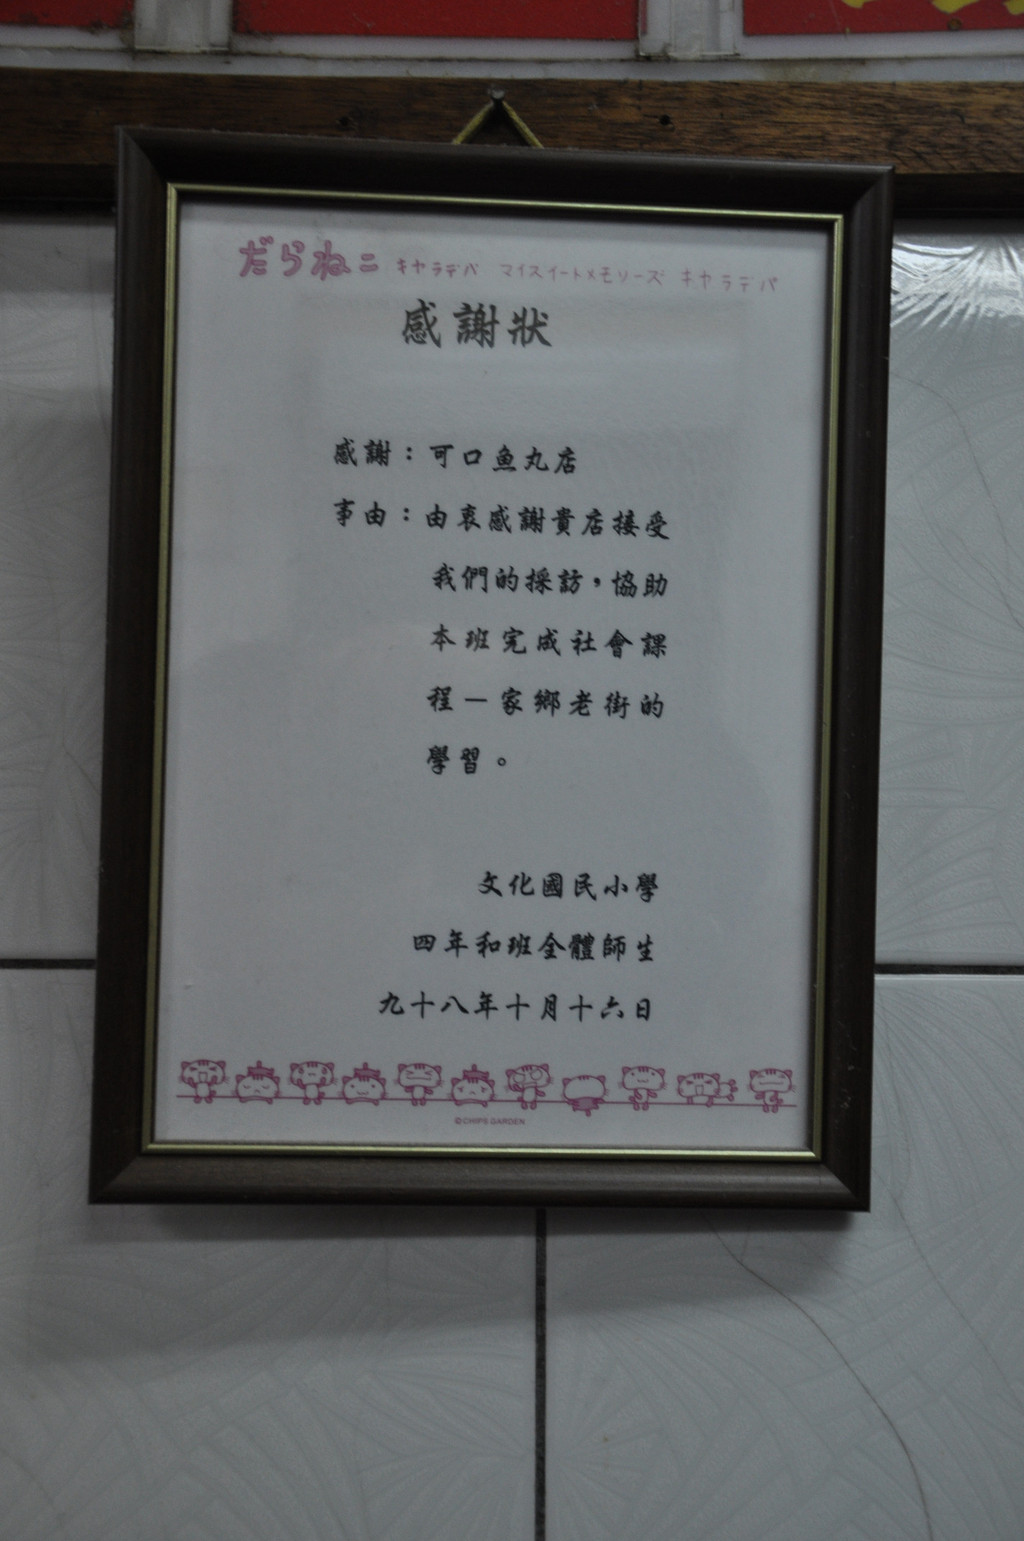 だらねこ キャラデパ マイスイートメモリーズ キャラデパ
感謝狀
感謝：可口魚丸店
事由：由衷感謝貴店接受
我們的採訪，協助
本班完成社會課
程－家鄉老街的
學習。
文化國民小學
四年和班全體師生
九十八年十月十六日
©CHIPS GARDEN